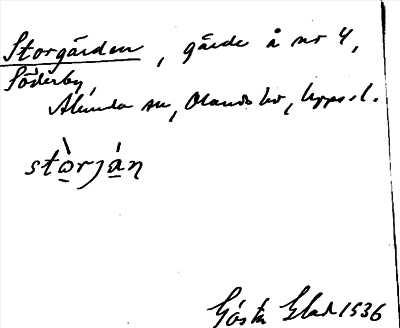 Storgården, gårde å nr 4,
Söderby,
Alunda sn, Olands hd, Upps. l.
stòrján
Gösta Glad 1536